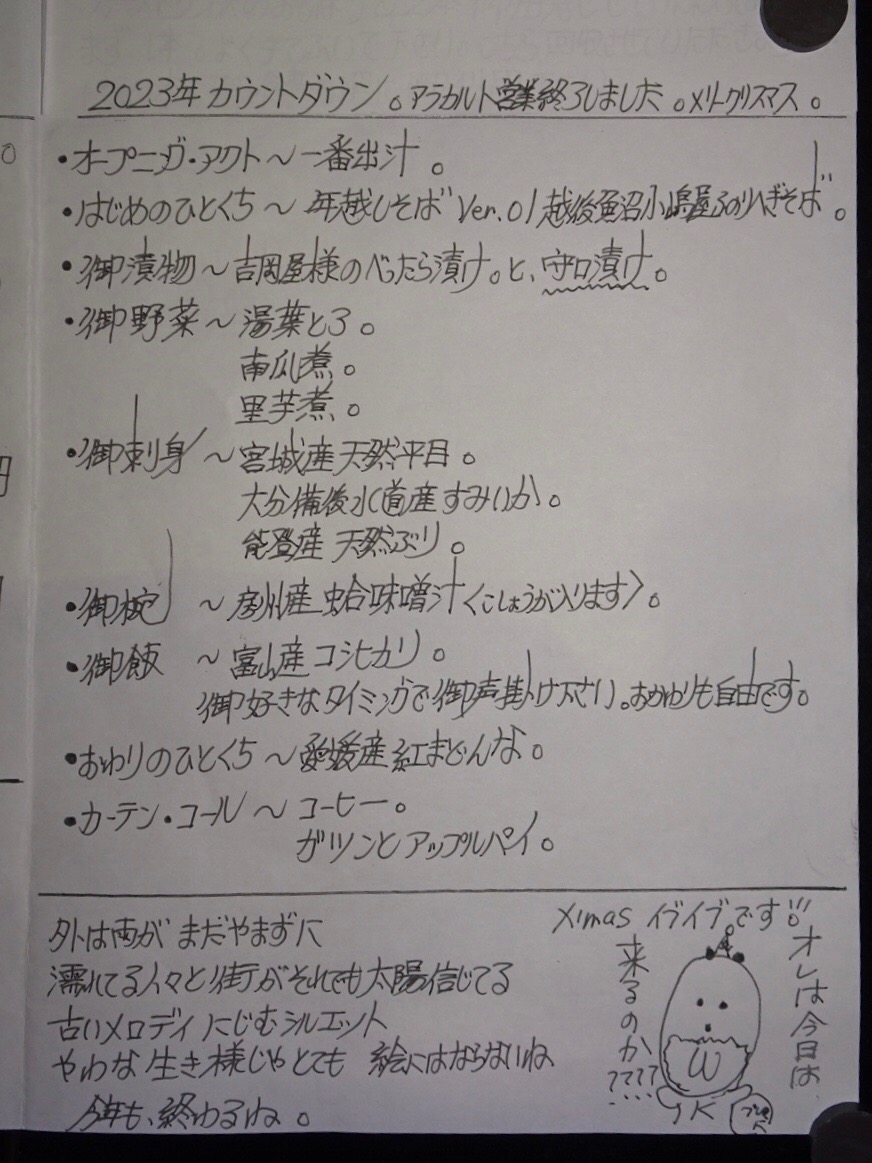 2023年カウントダウン。アラカルト営業終了しました。メリークリスマス。
・オープニング・アクト～一番出汁。
・はじめのひとくち～年越しそば Ver.01 越後魚沼小嶋屋ふのりへぎそば。
・御漬物～吉岡屋様のべったら漬け。と、守口漬け。
・御野菜～湯葉とろ。
南瓜煮。
里芋煮。
・御刺身～宮城産天然平目。
大分備後水道産すみいか。
能登産天然ぶり。
・御椀～房州産蛤味噌汁〈こしょうが入ります〉。
・御飯～富山産コシヒカリ。
御好きなタイミングで御声掛け下さい。おかわりも自由です。
・おわりのひとくち～愛媛産紅まどんな。
・カーテン・コール～コーヒー。
ガツンとアップルパイ。
外は雨がまだやまずに
濡れてる人々と街がそれでも太陽信じてる
古いメロディにじむシルエット
やわな生き様じゃとても絵にはならないね
今年も、終わるね。
Ximas イブイブです!!
オレは今日は
来るのか????
W
JK